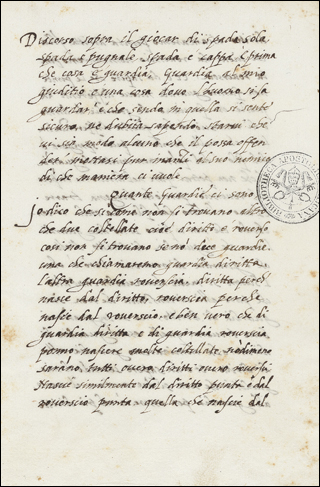 Discorso sopra il giocar di spada sola
spada e pugnale spada e cappa e prima
che cosa è guardia. Guardia al mio
giuditio e una cosa dove l'huomo si sa
guardar e che sendo in quella si sente
sicuro ne dubita sapendo starvi che
vi sia modo alcuno che il possa offen
der mettasi pur inanzi il suo nemico
di che maniera ei vuole
Quante guardie ci sono
Io dico che si come non si trovano altro
che due coltellate cioè diritti e roversi
cosi non si trovano se no doee guardie
una che chiamaremo guardia diritta
l'altra guardia rovescia, diritta perche
nasce dal diritto, roverscia perche
nasce dal roverscio, e ben vero che di
guardia diritta e di guardia roverscia
ponno nascere molte coltellate nodimeno
sarano tutti overo diritti overo roversi
Nasce similmente dal diritto punta e dal
roverscio punta quella che nasce dal
BIBLIOTHECA APOSTOLICA VATICANA